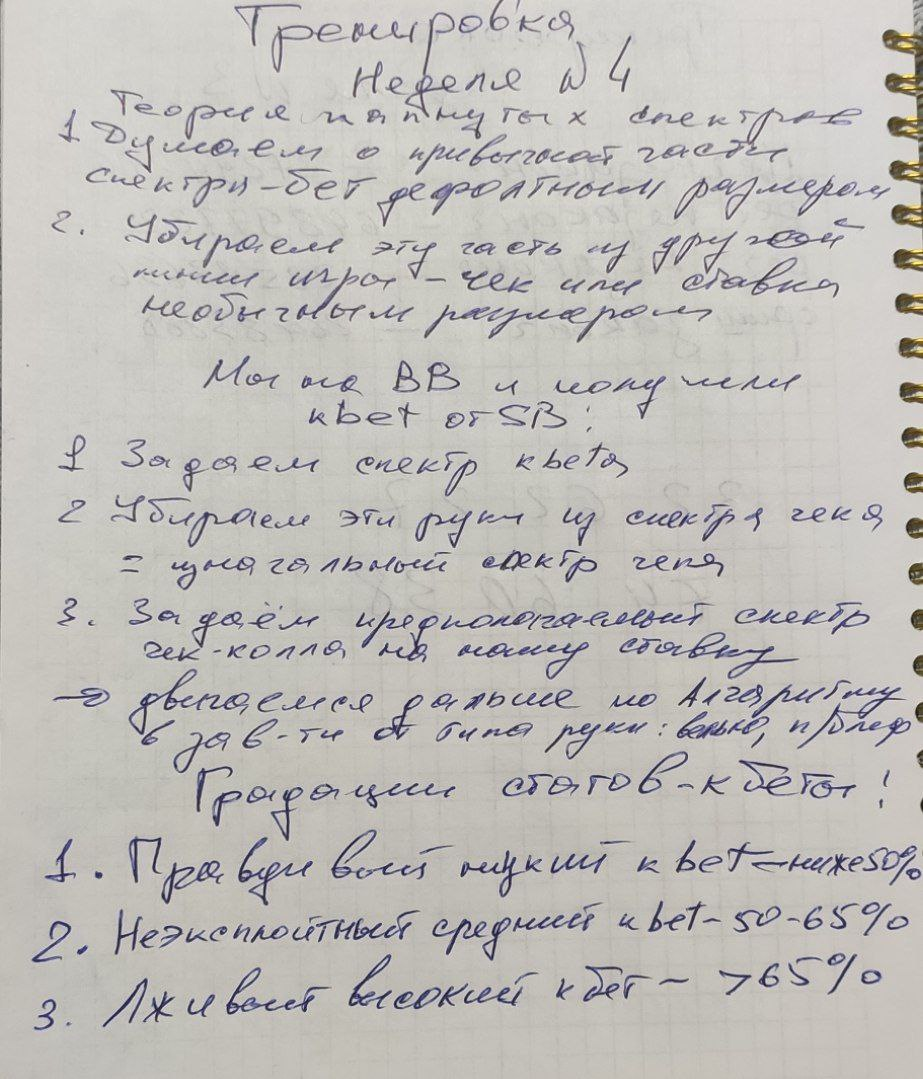 Тренировка
Неделя №4
Теория каппнутых спектров
1 Думаем о привычной части
спектра - бет дефолтным размером
2. Убираем эту часть из другой
линии игры - чек или ставка
необычным размером
Мы на BB и получили
кbet от SB:
1 Задаем спектр кbetа
2 Убираем эти руки из спектра чека
= изначальный спектр чека
3. Задаём предполагаемый спектр
чек-колла на нашу ставку
→ двигаемся дальше по Алгаритму
в зав-ти от типа руки: велью, п/блеф
Градации статов - кбеты!
1. Правдивый низкий кbet - ниже 50%
2. Неэксплойтный средний кbet - 50-65%
3. Лживый высокий кбет - >65%